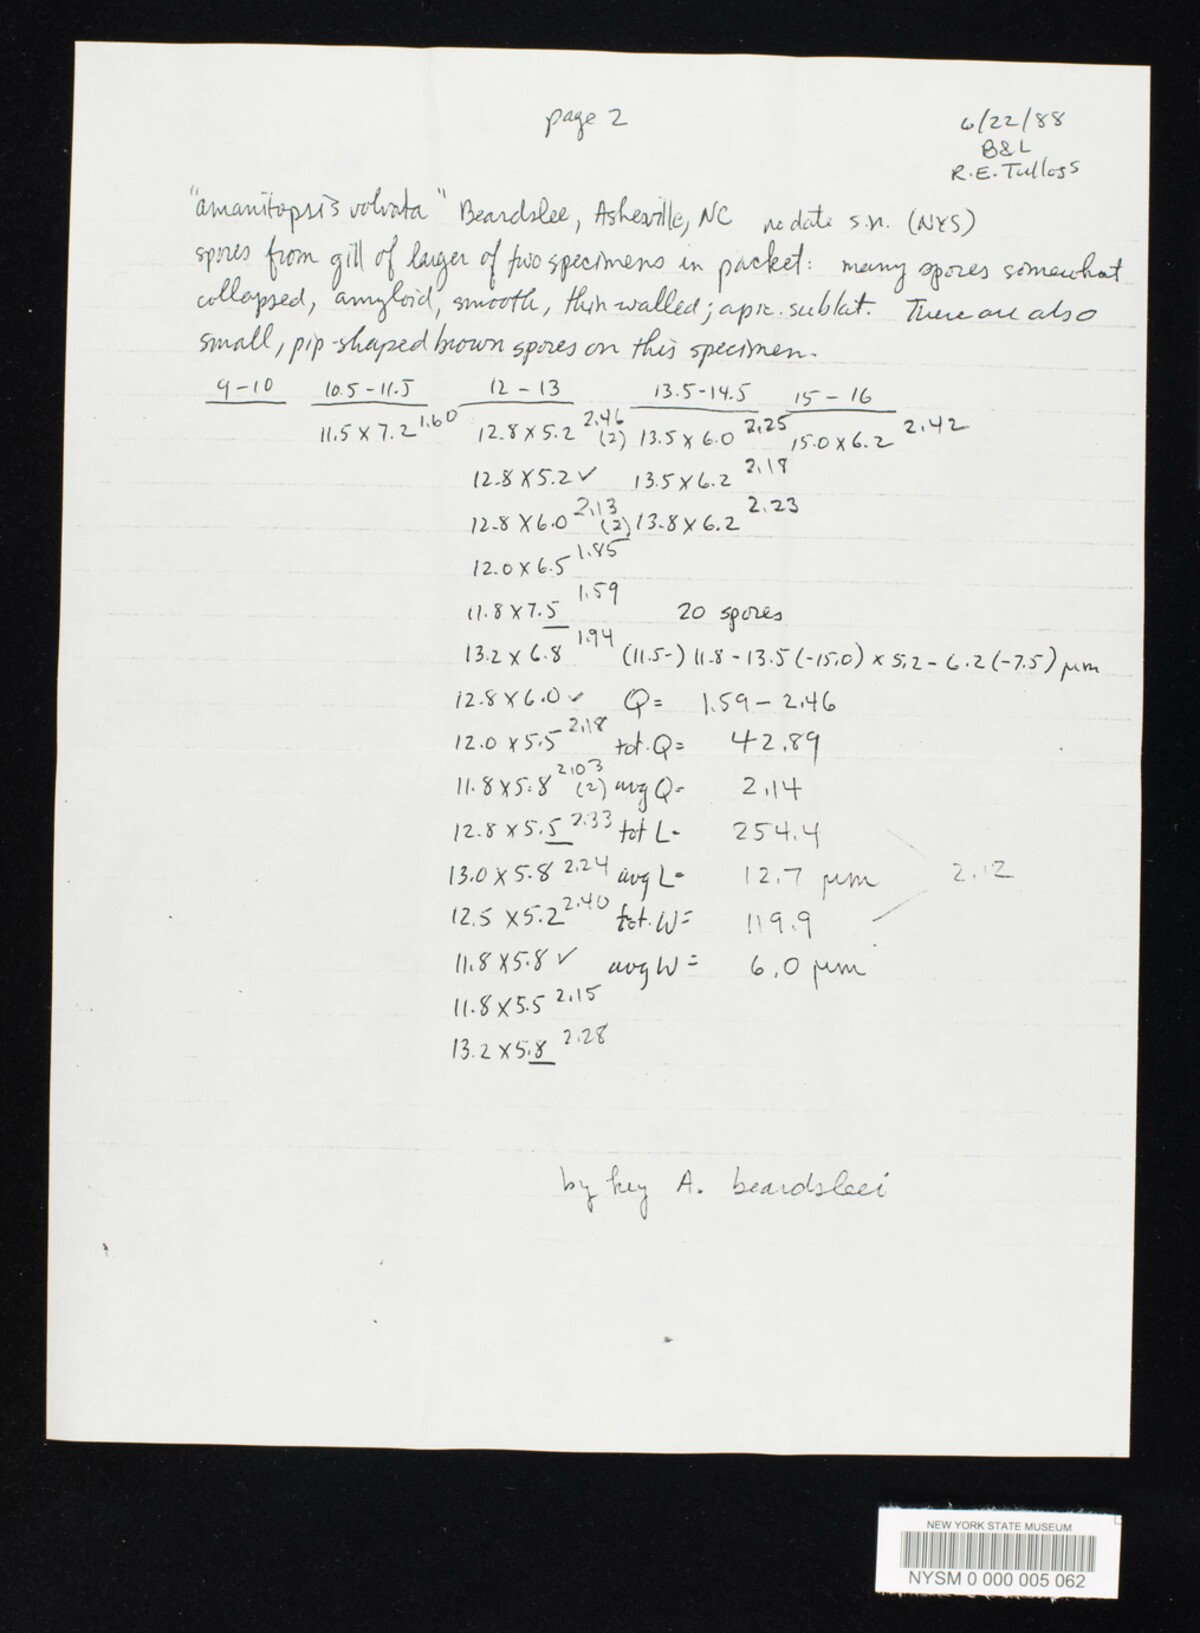 page 2
6/22/88
B&L
R.E. Tulloss
"amanitopsis volvata" Beardslee, Asheville, NC no date s.n. (NYS)
spores from gill of larger of two specimens in packet: many spores somewhat
collapsed, amyloid, smooth, thin-walled; apic. sublat. There are also
small, pip-shaped brown spores on this specimen.
9-10 10.5-11.5 12-13 13.5-14.5 15-16
11.5 x 7.2 1.60 12.8 x 5.2 2.46 (2) 13.5 x 6.0 2.25 15.0 x 6.2 2.42
12.8 x 5.2 ✓ 13.5 x 6.2 2.18
12.8 x 6.0 2.13 (2) 13.8 x 6.2 2.23
12.0 x 6.5 1.85
11.8 x 7.5 1.59 20 spores
13.2 x 6.8 1.94 (11.5-) 11.8 - 13.5 (-15.0) x 5.2 - 6.2 (-7.5) µm
12.8 x 6.0 ✓ Q = 1.59 - 2.46
12.0 x 5.5 2.18 tot. Q = 42.89
11.8 x 5.8 2.03 (2) avg Q = 2.14
12.8 x 5.5 2.33 tot L = 254.4
13.0 x 5.8 2.24 avg L = 12.7 µm 2.12
12.5 x 5.2 2.40 tot. W = 119.9
11.8 x 5.8 ✓ avg W = 6.0 µm
11.8 x 5.5 2.15
13.2 x 5.8 2.28
by key A. beardsleei
NEW YORK STATE MUSEUM
NYSM 0 000 005 062